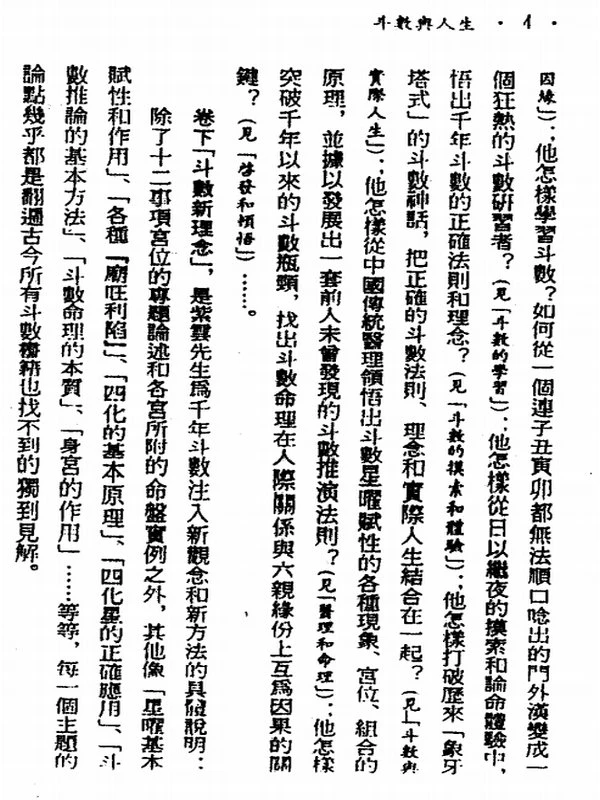 斗數與人生 · 4 ·
因緣」)；他怎樣學習斗數？如何從一個連子丑寅卯都無法順口唸出的門外漢變成一
個狂熱的斗數研習者？(見「斗數的學習」)；他怎樣從日以繼夜的摸索和論命體驗中，
悟出千年斗數的正確法則和理念？(見「斗數的摸索和體驗」)；他怎樣打破歷來「象牙
塔式」的斗數神話，把正確的斗數法則、理念和實際人生結合在一起？(見「斗數與
實際人生」)；他怎樣從中國傳統醫理領悟出斗數星曜賦性的各種現象、宮位、組合的
原理，並據以發展出一套前人未曾發現的斗數推演法則？(見「醫理和命理」)；他怎樣
突破千年以來的斗數瓶頸，找出斗數命理在人際關係與六親緣份上互爲因果的關
鍵？(見「啓發和頓悟」)……。
卷下「斗數新理念」，是紫雲先生爲千年斗數注入新觀念和新方法的具體說明：
除了十二事項宮位的專題論述和各宮所附的命盤實例之外，其他像「星曜基本
賦性和作用」、「各種「廟旺利陷」」、「四化的基本原理」、「四化星的正確應用」、「斗
數推論的基本方法」、「斗數命理的本質」、「身宮的作用」……等等，每一個主題的
論點幾乎都是翻遍古今所有斗數書籍也找不到的獨到見解。